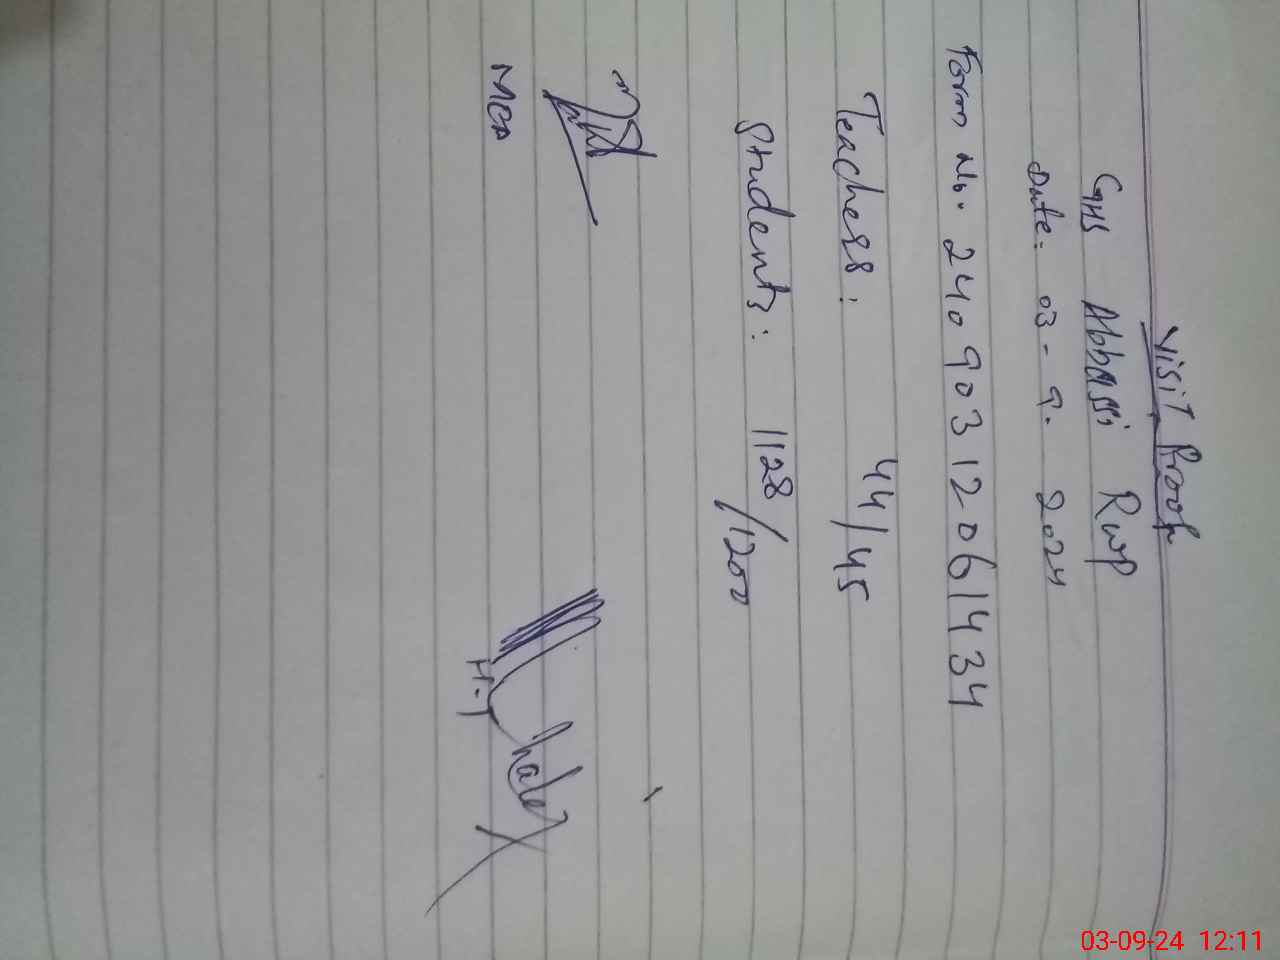 Visit Proof
GHS Abbassi RWP
Date: 03-9-2024
Form No. 240903120614 34
Teachers: 44/45
Students: 1128/1200
MEA
H.T
03-09-24 12:11